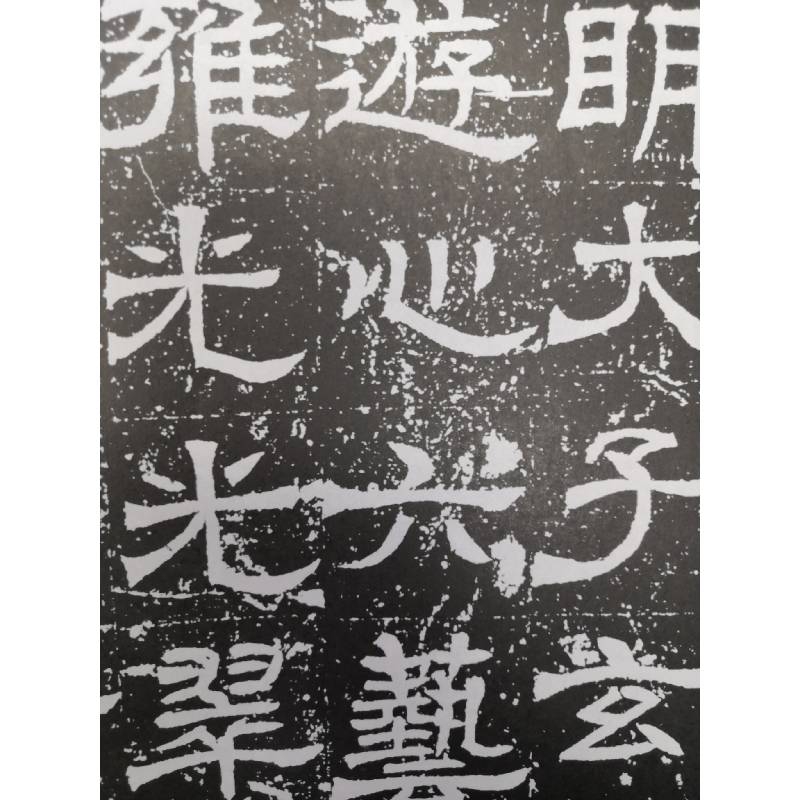 明大子玄
遊心六藝
雍光光翠